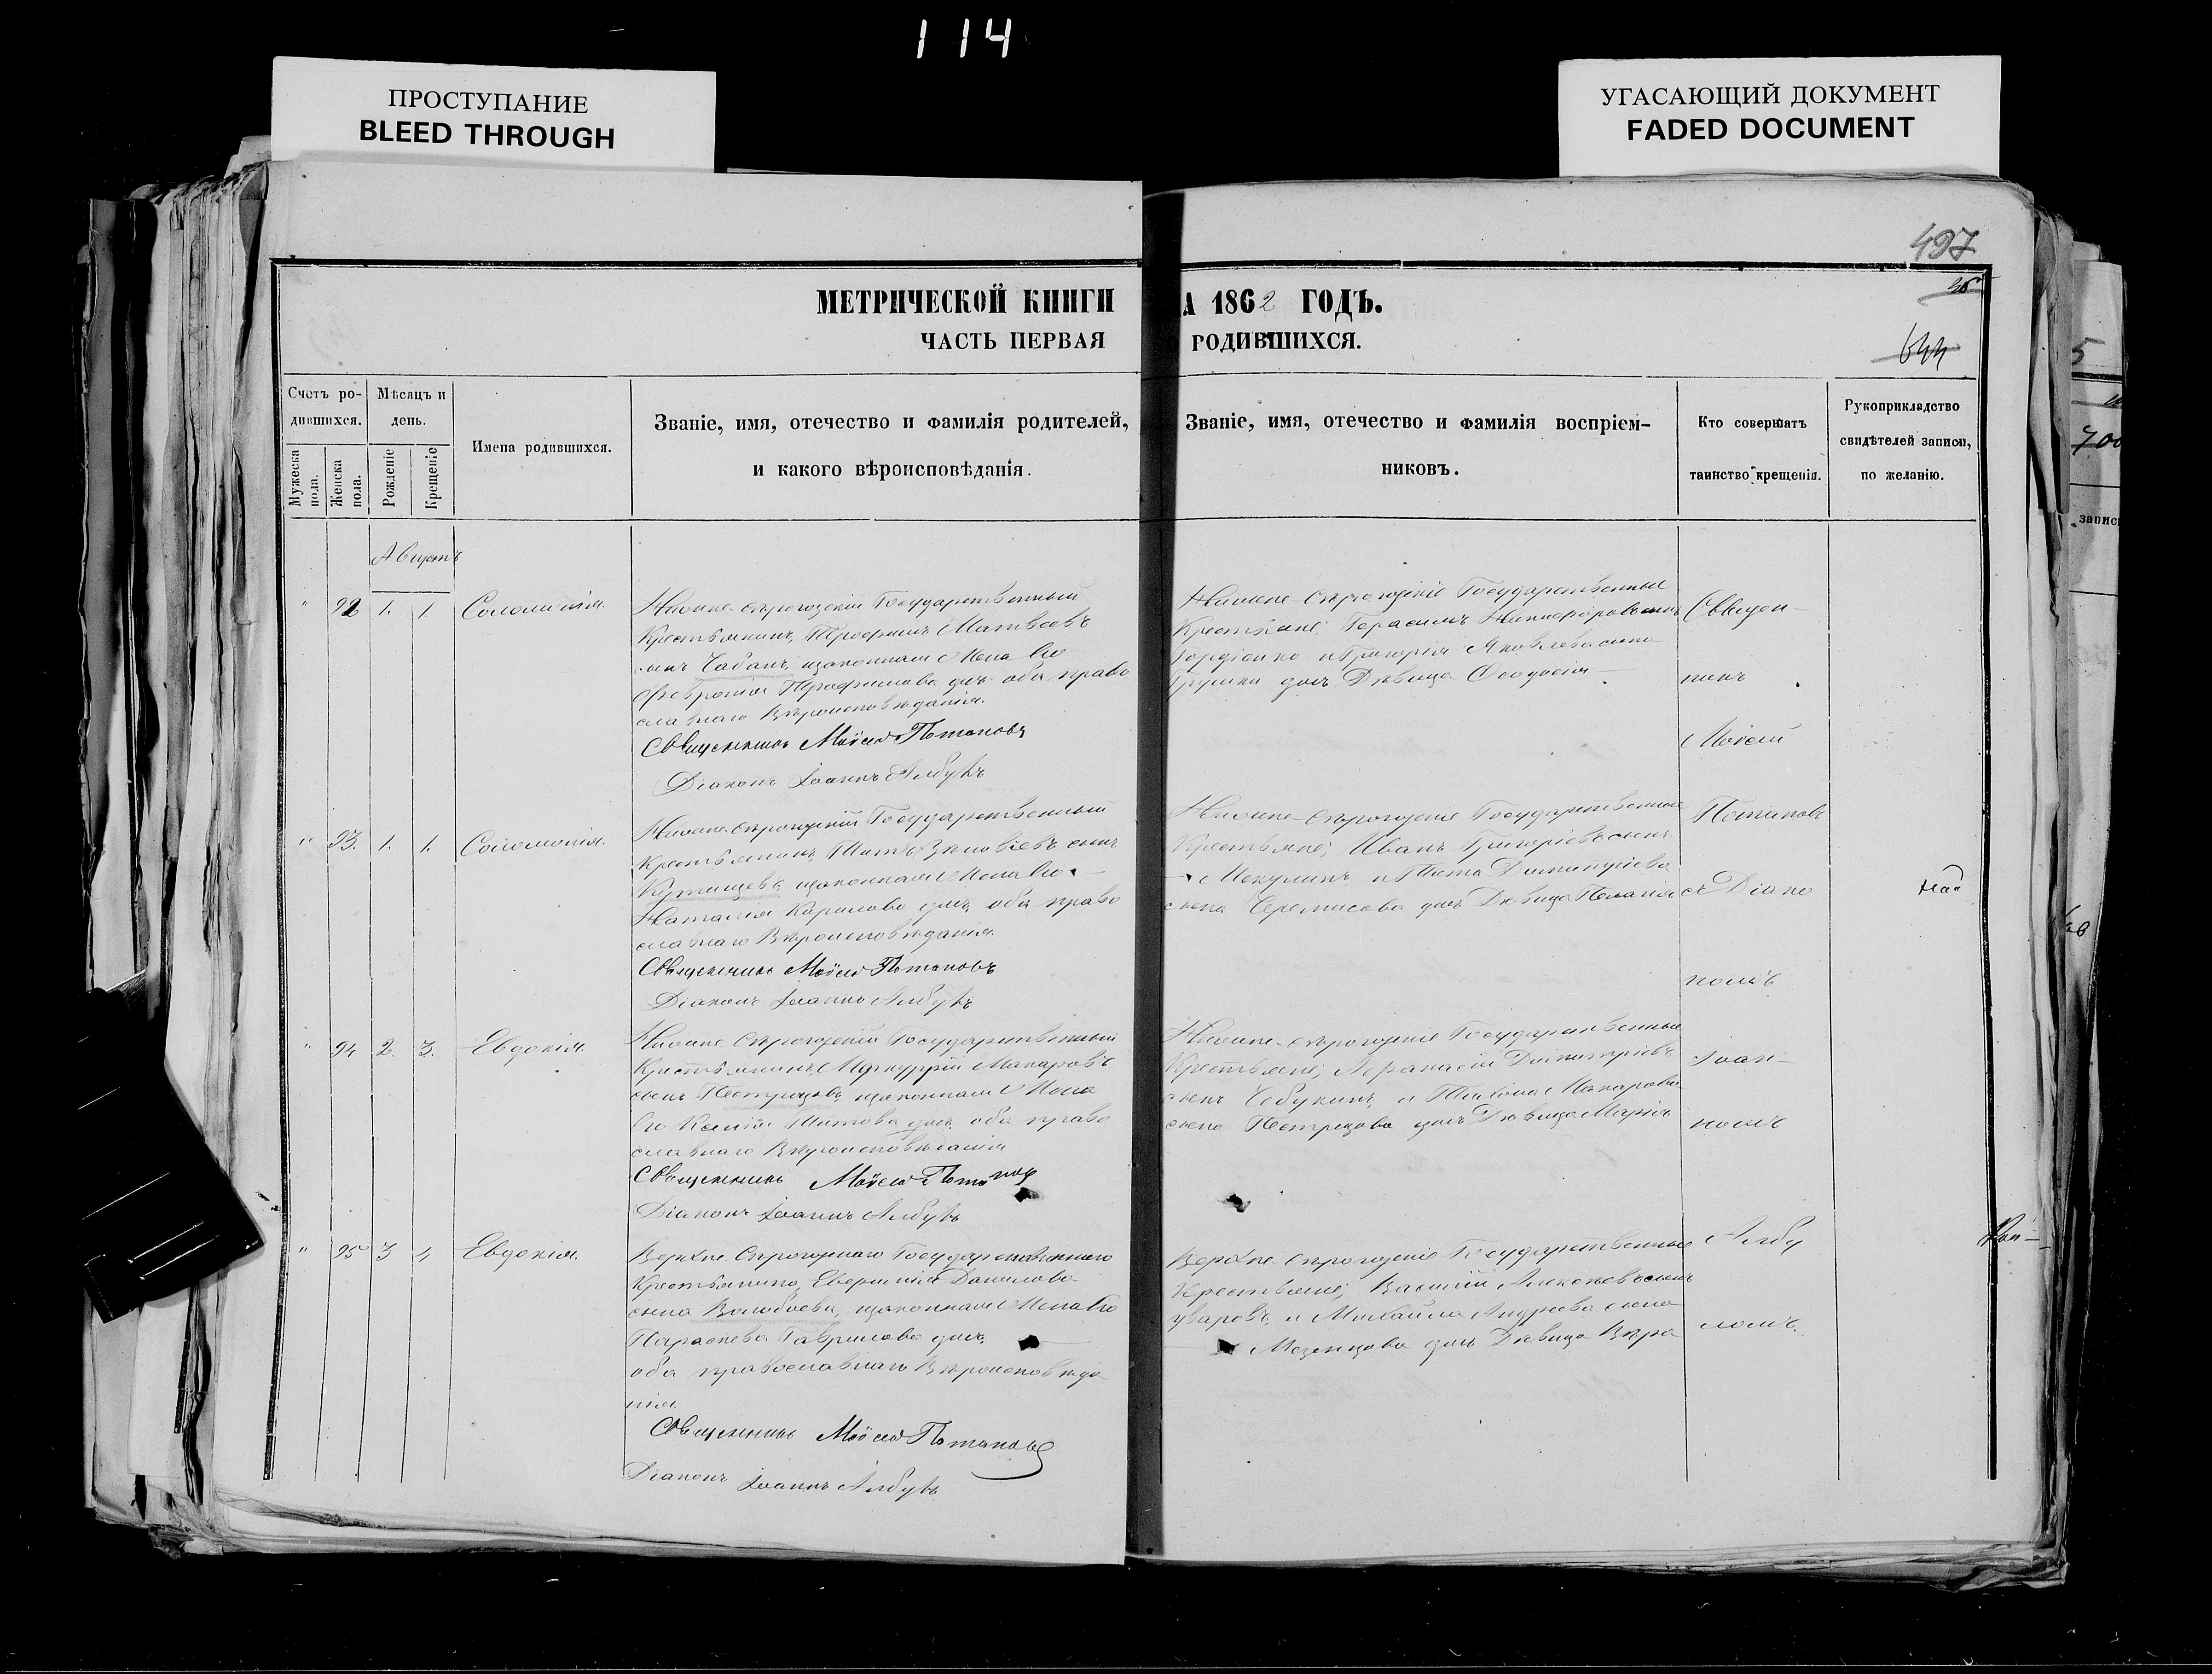 114
ПРОСТУПАНИЕ
BLEED THROUGH
УГАСАЮЩИЙ ДОКУМЕНТ
FADED DOCUMENT
497
644
МЕТРИЧЕСКОЙ КНИГИ
А 1862 ГОДЪ.
ЧАСТЬ ПЕРВАЯ
РОДИВШИХСЯ.
Счетъ ро-
дившихся.
Мужеска
пола.
Женска
пола.
Мѣсяцъ и
день.
Рожденіе
Крещеніе
Имена родившихся.
Званіе, имя, отечество и фамилія родителей,
и какого вѣроисповѣданія.
Званіе, имя, отечество и фамилія воспріем-
никовъ.
Кто совершатъ
таинство крещенія.
Рукоприкладство
свидѣтелей записи,
по желанію.
Августъ
" 92 1. 1 Соломонія.
Нижне-сѣрогозскій Государственный
Крестьянинъ, Трофимъ Матвѣевъ
сынъ Чабанъ, законная Жена Его
Феѳронія Трофимова дочь оба право
славнаго Вѣроисповѣданія.
Священникъ Моисей Потаповъ
Діаконъ Іоаннъ Албулъ
Нижне-сѣрогозскіе Государственные
Крестьяне; Герасимъ Никифоровъ сынъ
Гордіенко и Григорія Яковлева сына
дочь Дѣвица Ѳеодосія
" 93. 1. 1. Соломонія.
Нижне-сѣрогозскій Государственный
Крестьянинъ, Титъ Зиновіевъ сынъ
законная Жена Его
Наталія Карпова дочь, оба право
славнаго Вѣроисповѣданія.
Священникъ Моисей Потаповъ
Діаконъ Іоаннъ Албулъ
Нижне-сѣрогозскіе Государственные
Крестьяне; Иванъ Григорьевъ сынъ
и Тита Димитріева
сына Черемисова дочь Дѣвица Пелагія
" 94 2. 3. Евдокія.
Нижне Сѣрогозскій Государственный
Крестьянинъ, Меркурій Макаровъ
сынъ Пестрецовъ, законная Жена
Его Ксенія Титова дочь, оба право
славнаго Вѣроисповѣданія
Священникъ Моисей Потапов
Діаконъ Іоаннъ Албулъ
Нижне-сѣрогозскіе Государственные
Крестьяне; Аѳанасій Димитріевъ
сынъ Чебукинъ, и Тихона Макарова
сына Пестрецова дочь Дѣвица Марія
" 95 3 4 Евдокія.
Верхне Сѣрогозскаго Государственнаго
Крестьянина, Данилова
сына Волобоева, законная Жена Его
Параскева Гаврилова дочь,
оба православнаго Вѣроисповѣда
нія.
Священникъ Моисей Потаповъ
Діаконъ Іоаннъ Албулъ
Верхне Сѣрогозскіе Государственные
Крестьяне; Василій Алексѣевъ сынъ
Уваровъ, и Михаила Андреева сына
Мезенцова дочь Дѣвица Вѣра
Священ-
никъ
Моисей
Потаповъ
съ Діако
номъ
Іоан-
номъ
Албу
ломъ.